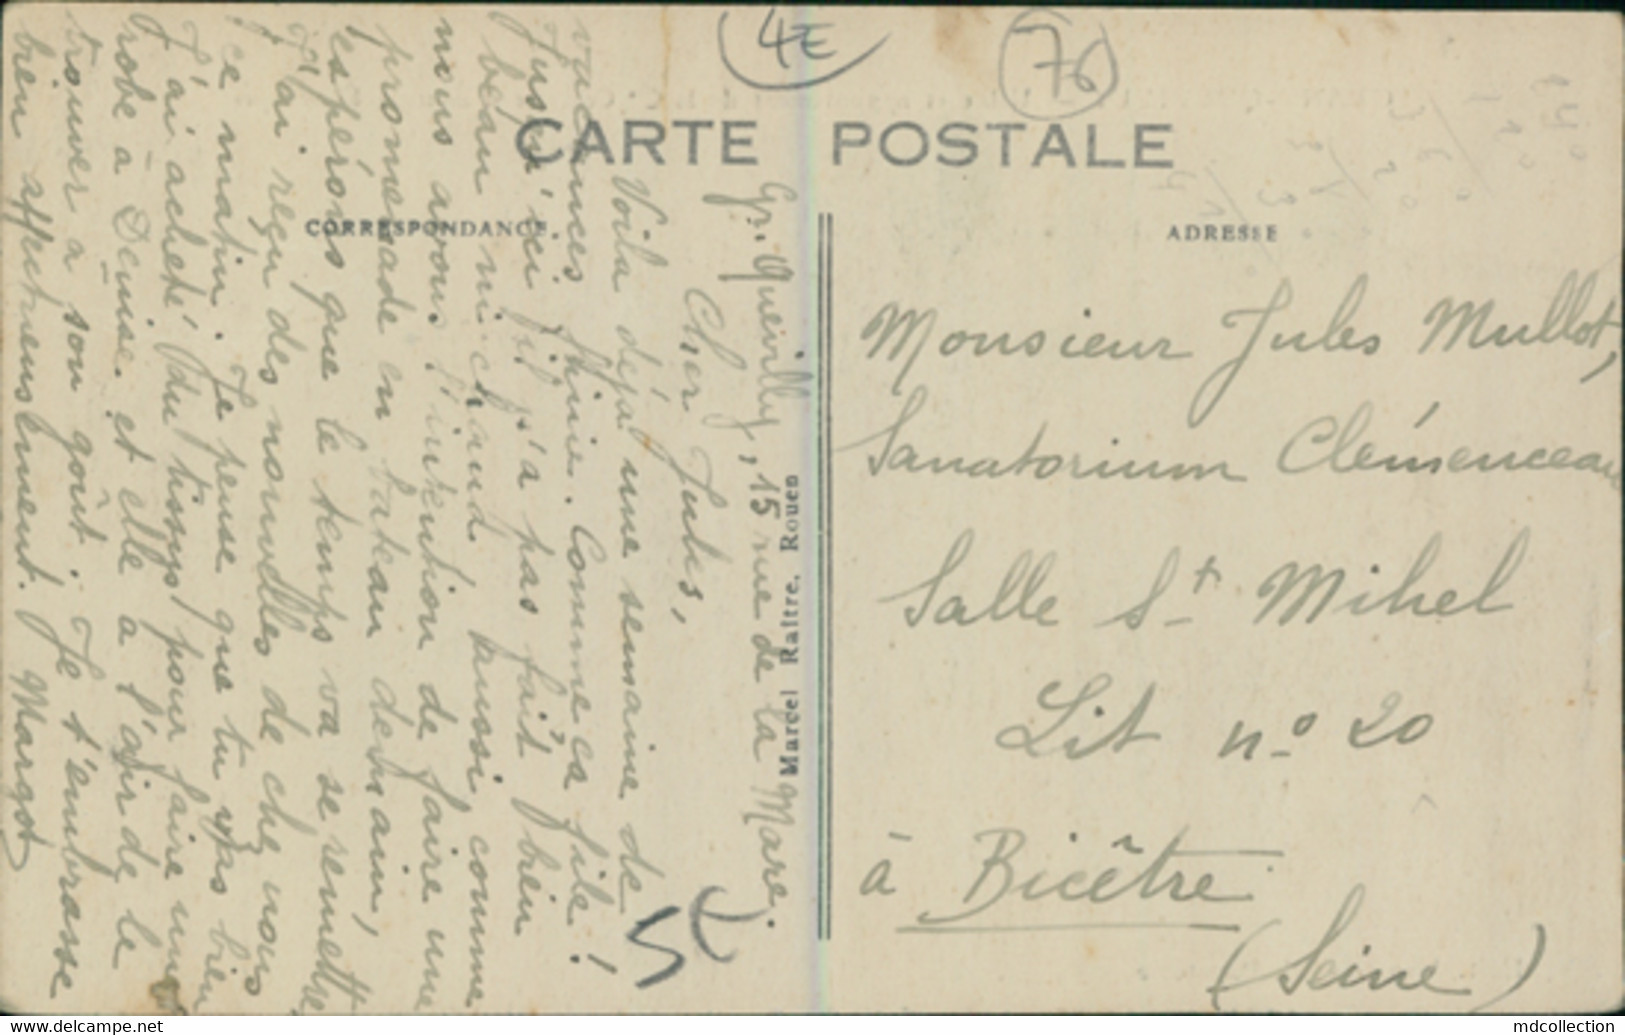 4E
76
CARTE POSTALE
CORRESPONDANCE
ADRESSE
Gd. Quevilly, 15 rue de la Mare.
Cher Jules,
Voila déjà une semaine de
vacances finie. Comme ça file!
Jusqu'ici il n'a pas fait bien
beau ni chaud aussi, comme
nous avons l'intention de faire une
promenade en bateau demain,
espérons que le temps va se remettre
J'ai reçu des nouvelles de chez nous
ce matin. Je pense que tu vas bien
J'ai acheté du tissu pour faire une
robe à Denise. et elle a l'air de le
trouver à son goût. Je t'embrasse
bien affectueusement. Margot
5€
Marcel Raitre, Rouen
Monsieur Jules Mullot,
Sanatorium Clémenceau
Salle St Mihel
Lit n° 20
à Bicêtre
(Seine)
mdcollection
www.delcampe.net